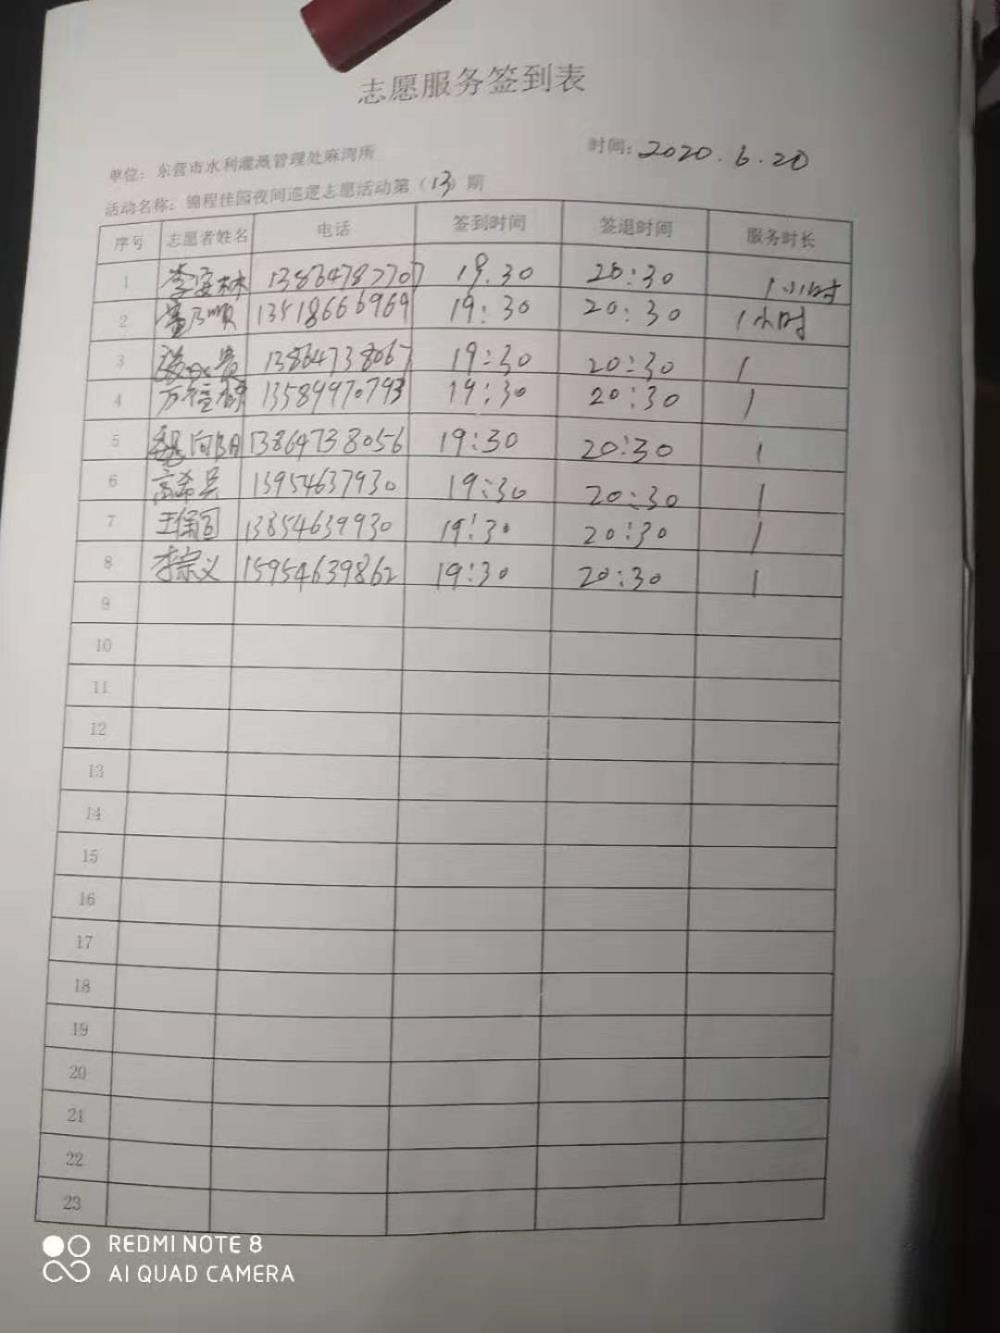 志愿服务签到表
时间：2020.6.20
单位：东营市水利灌溉管理处麻湾所
活动名称：锦程佳园夜间巡逻志愿活动第（13）期
序号 志愿者姓名 电话 签到时间 签退时间 服务时长
1 李安林 13864787707 19.30 20:30 1小时
2 董乃顺 13518666969 19:30 20:30 1小时
3 13864738067 19:30 20:30 1
4 13589970793 19:30 20:30 1
5 魏向阳 13864738056 19:30 20:30 1
6 高希兵 13954637930 19:30 20:30 1
7 王保国 13854639930 19:30 20:30 1
8 李宗义 15954639862 19:30 20:30 1
9
10
11
12
13
14
15
16
17
18
19
20
21
22
23
REDMI NOTE 8
AI QUAD CAMERA